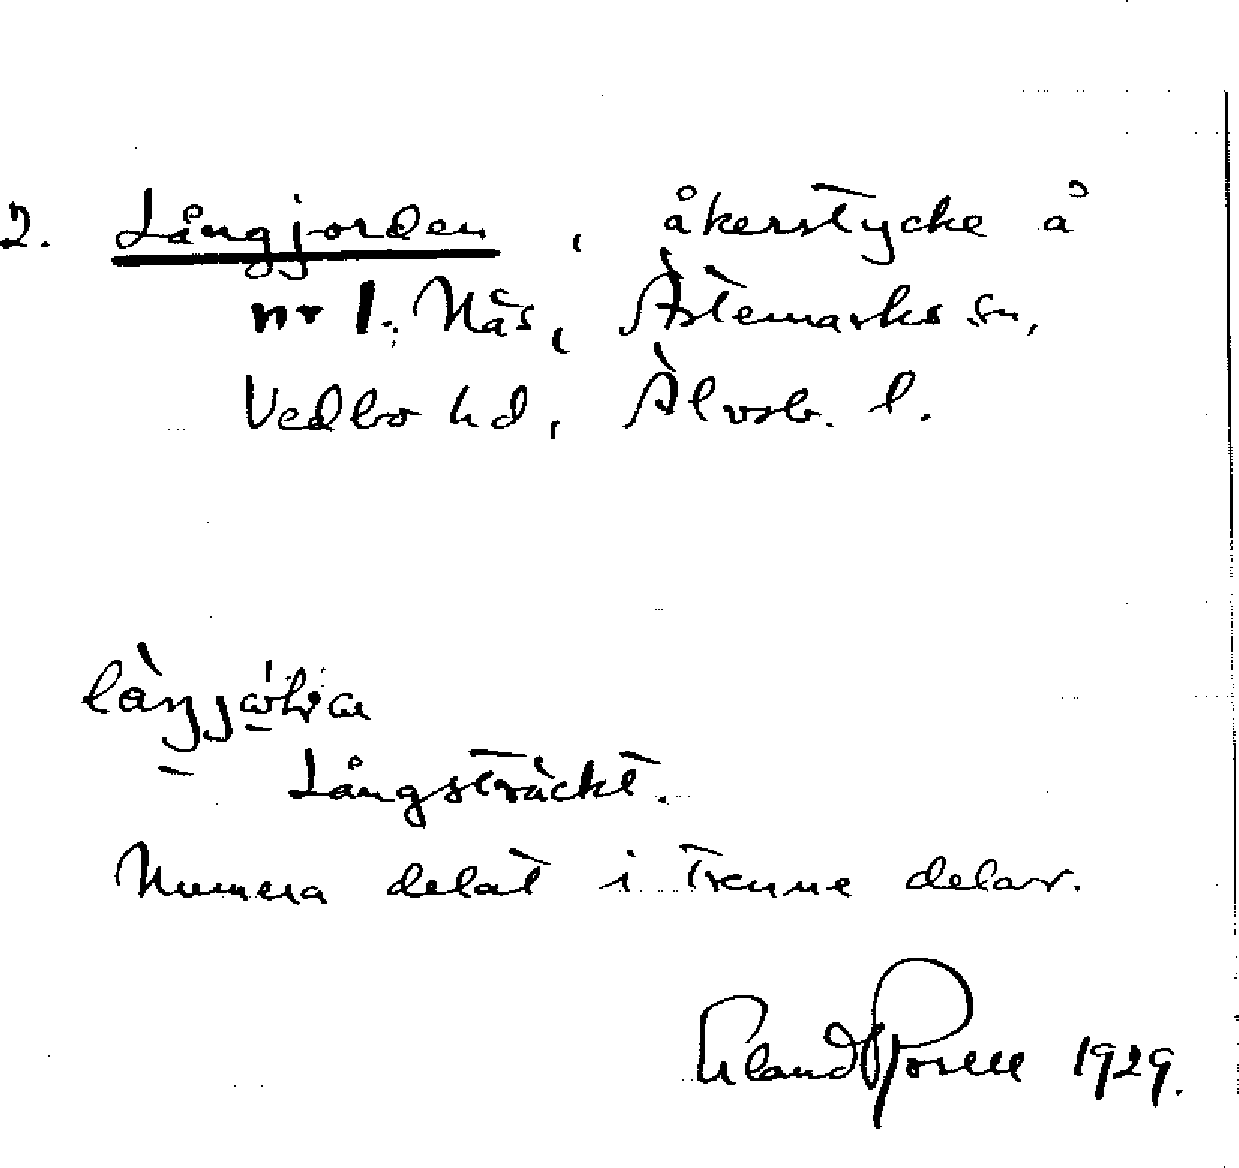 2. Långjorden, åkerstycke å
nr 1. Näs, Ärtemarks sn,
Vedbo hd, Älvsb. l.
Långsträckt.
Numera delat i trenne delar.
Erland Rosell 1929.